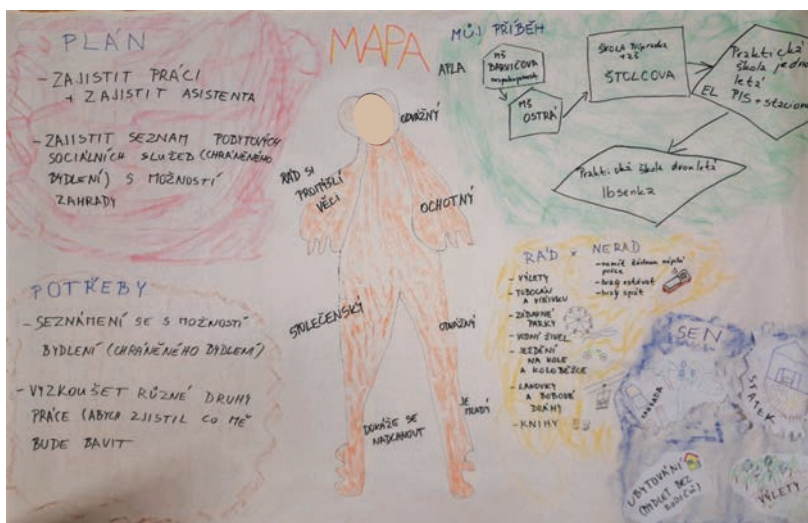 PLÁN
- ZAJISTIT PRÁCI
+ ZAJISTIT ASISTENTA
- ZAJISTIT SEZNAM POBYTOVÝCH
SOCIÁLNÍCH SLUŽEB (CHRÁNĚNÉHO
BYDLENÍ) S MOŽNOSTÍ
ZAHRADY
POTŘEBY
- SEZNÁMENÍ SE S MOŽNOSTÍ
BYDLENÍ (CHRÁNĚNÉHO BYDLENÍ)
- VYZKOUŠET RŮZNÉ DRUHY
PRÁCE (ABYCH ZJISTIL CO MĚ
BUDE BAVIT
MAPA
ODVÁŽNÝ
RÁD SI
PROMÝŠLÍ
VĚCI
OCHOTNÝ
SPOLEČENSKÝ
ODVÁŽNÝ
JE
MLADÝ
DOKÁŽE SE
NADCHNOUT
MŮJ PŘÍBĚH
APLA
MŠ
BARVIČOVA
MŠ
OSTRÁ
ŠKOLA
+ZŠ
ŠTOLCOVA
Praktická
škola jedno
letá
EL PIS + stacionář
Praktická škola dvouletá
Ibsenka
RÁD × NERAD
- VÝLETY
- TOBOGÁN
A VÍŘIVKU
- ZÁBAVNÉ
PARKY
- VODNÍ ŽIVEL
- JEŽDĚNÍ
NA KOLE
A KOLOBĚŽCE
- LANOVKY
A BOBOVÉ
DRÁHY
- KNIHY
- nemít žádnou náplň
práce
- brzy vstávat
- brzy spát
SEN
ZAHRADA
STATEK
UBYTOVÁNÍ
(BYDLET BEZ
RODIČŮ)
VÝLETY